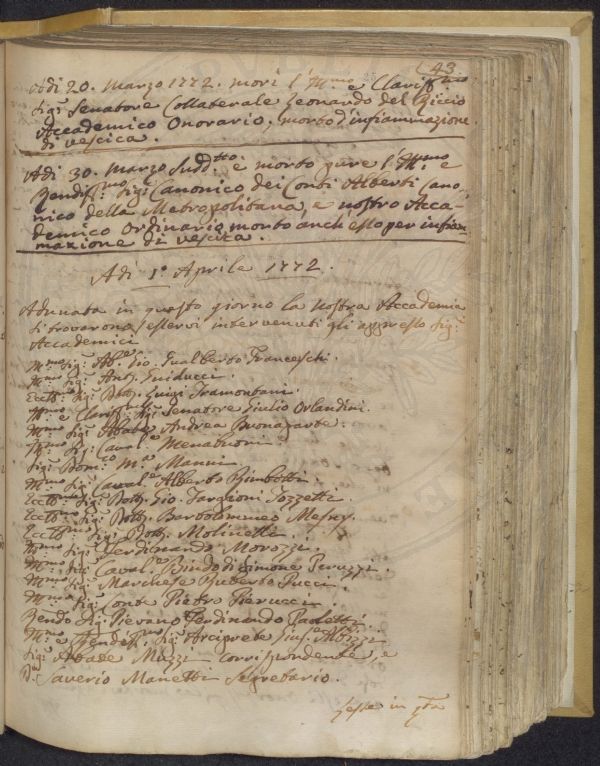 43
Adì 20. Marzo 1772. morì l'Ill.mo e Clariss.mo
Sig.r Senatore Collaterale Leonardo del Riccio
Accademico Onorario, morto d'infiammazione
di vescica.
Adì 30. Marzo Sudd.tto è morto pure l'Ill.mo e
Rendiss.mo Sig.r Canonico dei Conti Alberti Cano=
nico della Metropolitana, e nostro Acca=
demico Ordinario, morto anch'esso per infiam
mazione di vescica.
Adì 1.° Aprile 1772.
Adunata in questo giorno la nostra Accademia
si trovarono esservi intervenuti gli appresso Sig.ri
Accademici
Ill.mo Sig.r Ab.e Gio. Gualberto Franceschi.
Ill.mo Sig.r Ant.o Guiducci.
Eccll.mo Sig.r Dott. Luigi Tramontani.
Ill.mo e Clariss.mo Sig.r Senatore Giulio Orlandini.
Ill.mo Sig.r Abate Andrea Buonaparte.
Ill.mo Sig.r Caval.e Menabuoni
Sig.r Dom.co M.a Manni
Ill.mo Sig.r Caval.e Alberto Rimbotti.
Eccll.mo Sig.r Dott. Gio. Targioni Tozzetti.
Eccll.mo Sig.r Dott. Bartolommeo Mesny.
Eccll.mo Sig.r Dott. Molinelli.
Ill.mo Sig.r Ferdinando Morozzi.
Ill.mo Sig.r Caval.e Bindo di Simone Peruzzi.
Ill.mo Sig.r Marchese Ruberto Pucci.
Ill.mo Sig.r Conte Pietro Pierucci
Rendo Sig.r Pievano Ferdinando Paoletti.
Ill.mo e Rendiss.mo Sig.r Arciprete Gius.e Albizzi
Sig.r Abate Muzzi corrispondente, e
D.r Saverio Manetti Segretario.